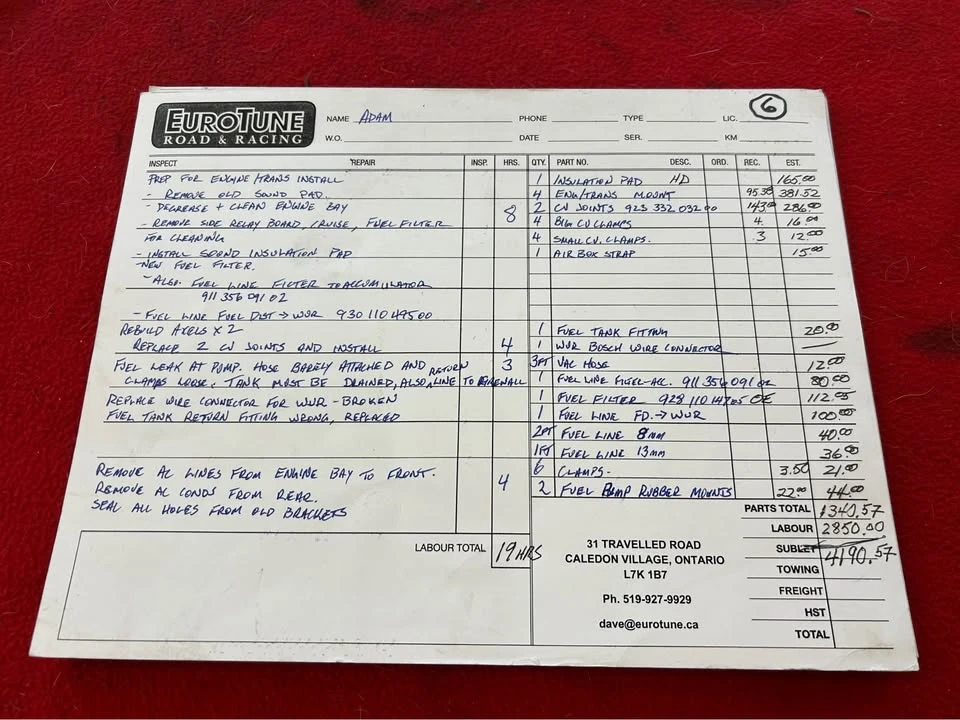 6
EUROTUNE
ROAD & RACING
NAME ADAM PHONE TYPE LIC.
W.O. DATE SER. KM
INSPECT REPAIR INSP. HRS. QTY. PART NO. DESC. ORD. REC. EST.
PREP FOR ENGINE/TRANS INSTALL
- REMOVE OLD SOUND PAD
- DEGREASE + CLEAN ENGINE BAY
8
- REMOVE SIDE RELAY BOARD, CRUISE, FUEL FILTER
FOR CLEANING
- INSTALL SOUND INSULATION PAD
- NEW FUEL FILTER.
- ALSO. FUEL LINE FILTER TO ACCUMULATOR
911 356 091 02
- FUEL LINE FUEL DIST → WUR 930 110 495 00
REBUILD AXELS X 2
REPLACE 2 CV JOINTS AND INSTALL 4
FUEL LEAK AT PUMP. HOSE BARELY ATTACHED AND RETURN 3
CLAMPS LOOSE. TANK MUST BE DRAINED, ALSO LINE TO FIREWALL
REPLACE WIRE CONNECTOR FOR WUR - BROKEN
FUEL TANK RETURN FITTING WRONG, REPLACED
REMOVE AC LINES FROM ENGINE BAY TO FRONT.
REMOVE AC CONDS FROM REAR. 4
SEAL ALL HOLES FROM OLD BRACKETS
LABOUR TOTAL 19 HRS
1 INSULATION PAD HD 165.00
4 ENG/TRANS MOUNT 95.38 381.52
2 CV JOINTS 923 332 032 00 143.00 286.00
4 BIG CV CLAMPS 4. 16.00
4 SMALL CV. CLAMPS. 3 12.00
1 AIR BOX STRAP 15.00
1 FUEL TANK FITTING 20.00
1 WUR BOSCH WIRE CONNECTOR —
3FT VAC HOSE 12.00
1 FUEL LINE FILTER-ACC. 911 356 091 02 80.00
1 FUEL FILTER 928 110 147 05 OE 112.05
1 FUEL LINE FD. → WUR 100.00
2FT FUEL LINE 8MM 40.00
1FT FUEL LINE 13MM 36.00
6 CLAMPS. 3.50 21.00
2 FUEL PUMP RUBBER MOUNTS 22.00 44.00
PARTS TOTAL 1340.57
LABOUR 2850.00
SUBLET 4190.57
TOWING
FREIGHT
HST
TOTAL
31 TRAVELLED ROAD
CALEDON VILLAGE, ONTARIO
L7K 1B7
Ph. 519-927-9929
dave@eurotune.ca